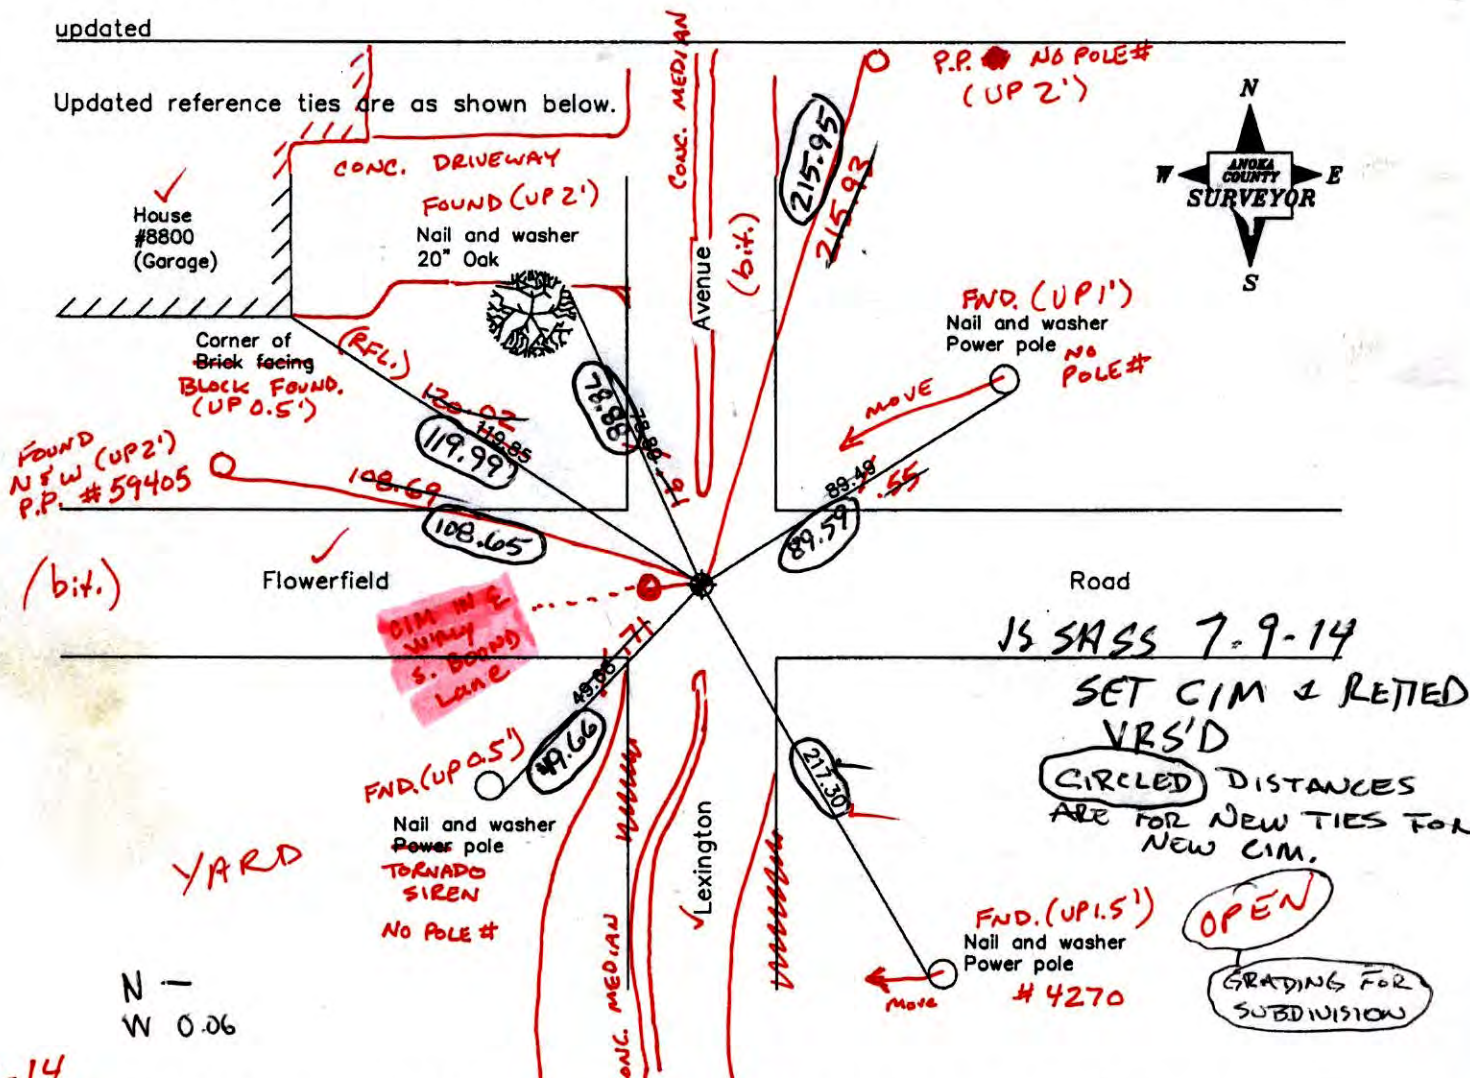 updated
Updated reference ties are as shown below.
CONC. MEDIAN
P.P. NO POLE#
(UP 2')
N
W
E
S
ANOKA
COUNTY
SURVEYOR
CONC. DRIVEWAY
FOUND (UP 2')
Nail and washer
20" Oak
House
#8800
(Garage)
215.95
215.93
(bit.)
Avenue
FND. (UP 1')
Nail and washer
Power pole
NO
POLE#
MOVE
Corner of
Brick facing
BLOCK FOUND.
(UP 0.5')
(RFL.)
120.02
119.85
119.99
78.88
78.89
.91
FOUND
N & W (UP 2')
P.P. #59405
108.69
108.65
89.49
.55
89.59
(bit.)
Flowerfield
Road
CIM IN &
S. BOUND
LANE
JS SASS 7-9-14
SET CIM & RETIED
VRS'D
CIRCLED DISTANCES
ARE FOR NEW TIES FOR
NEW CIM.
.71
49.66
217.30
FND. (UP 0.5')
Nail and washer
Power pole
TORNADO
SIREN
NO POLE #
YARD
Lexington
CONC. MEDIAN
FND. (UP 1.5')
Nail and washer
Power pole
# 4270
Move
OPEN
GRADING FOR
SUBDIVISION
N —
W 0.06
-14